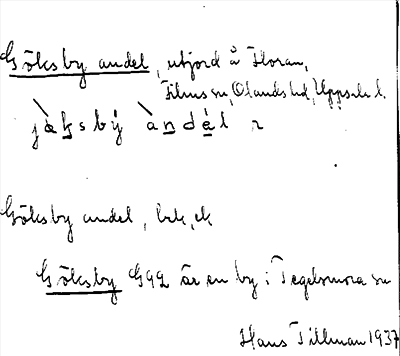 Göksby andel, utjord å Floran,
Films sn, Olands hd, Uppsala l.
Göksby andel, bek, ek
Göksby G42 är en by i Tegelsmora sn
Hans Tillman 1937